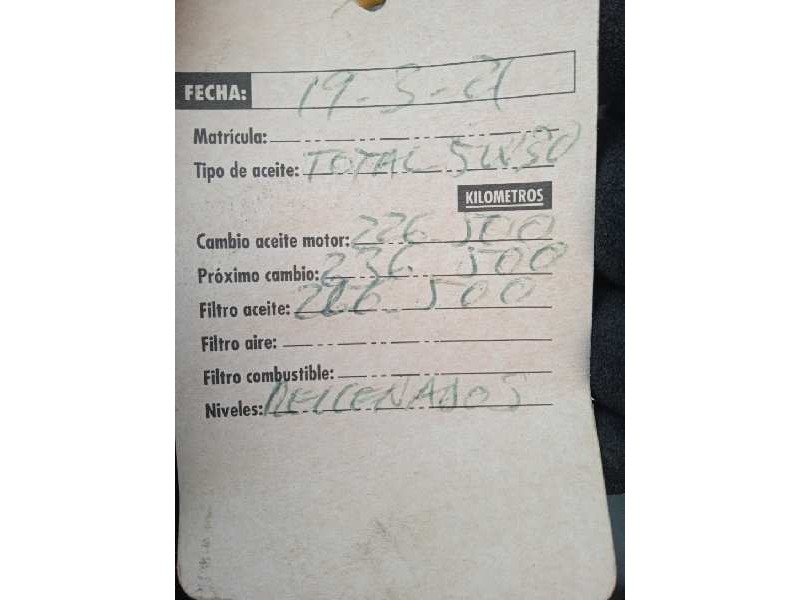 FECHA: 19-3-21
Matrícula:
Tipo de aceite: TOTAL 5W30
KILOMETROS
Cambio aceite motor: 226.500
Próximo cambio: 236.500
Filtro aceite: 226.500
Filtro aire:
Filtro combustible:
Niveles: RELLENADOS